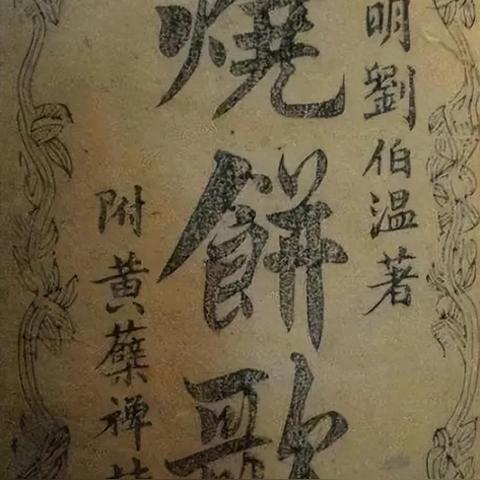 明劉伯温著
燒餅歌
附黃蘗禪